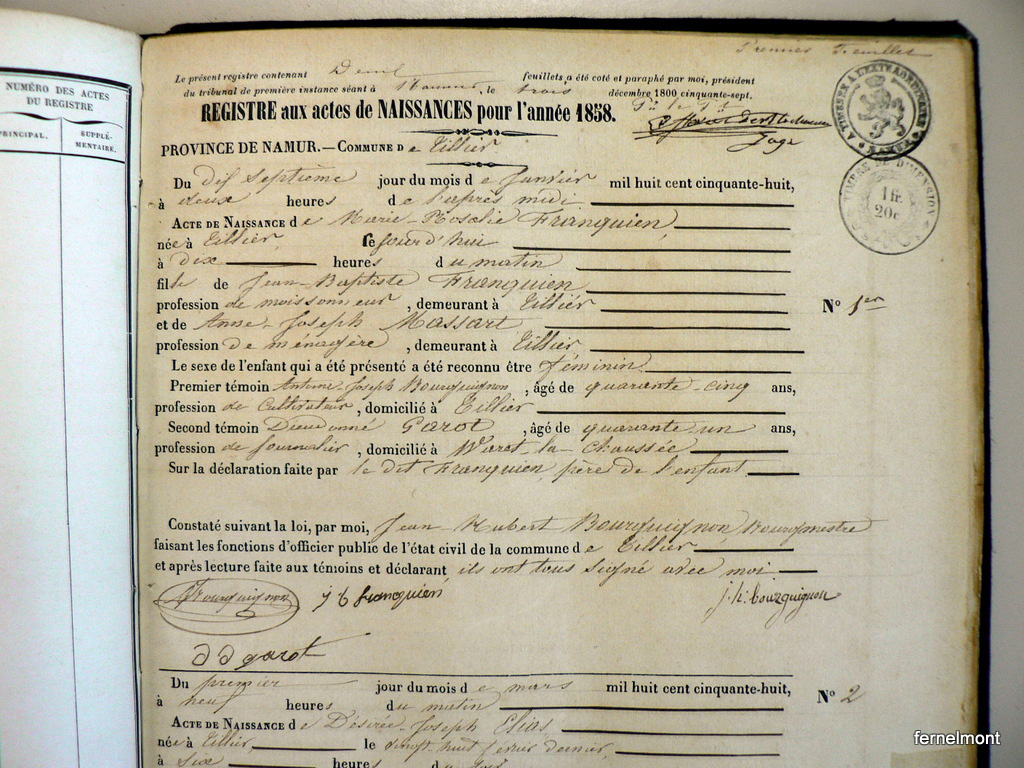 NUMÉRO DES ACTES
DU REGISTRE
PRINCIPAL.
SUPPLÉ-
MENTAIRE.
Le présent registre contenant feuillets a été coté et paraphé par moi, président
du tribunal de première instance séant à Namur, le trois décembre 1800 cinquante-sept.
REGISTRE aux actes de NAISSANCES pour l'année 1858.
PROVINCE DE NAMUR.—COMMUNE de Tillier
Du dix septième jour du mois de Janvier mil huit cent cinquante-huit,
à deux heures de l'après midi
ACTE DE NAISSANCE de Marie-Rosalie Franquien
née à Tillier le jourd'hui
à dix heures du matin
fille de Jean-Baptiste Franquien
profession de moissonneur, demeurant à Tillier
et de Anne-Joseph Massart
profession de ménagère, demeurant à Tillier
Le sexe de l'enfant qui a été présenté a été reconnu être féminin
Premier témoin Antoine-Joseph Bourguignon, âgé de quarante-cinq ans,
profession de Cultivateur, domicilié à Tillier
Second témoin Dieudonné Garot, âgé de quarante un ans,
profession de journalier, domicilié à Waret-la-Chaussée
Sur la déclaration faite par le dit Franquien, père de l'enfant
N° 1er
Constaté suivant la loi, par moi, Jean-Hubert Bourguignon, Bourgmestre
faisant les fonctions d'officier public de l'état civil de la commune de Tillier
et après lecture faite aux témoins et déclarant, ils ont tous signé avec moi
Bourguignon J b franquien j. h. bourguignon
d d garot
Du premier jour du mois de mars mil huit cent cinquante-huit,
à neuf heures du matin
N° 2
ACTE DE NAISSANCE de Désirée-Joseph Elias
née à Tillier le vingt-huit février dernier
à six heures du soir
TIMBRE DE DIMENSION
1 fr.
20 c
fernelmont